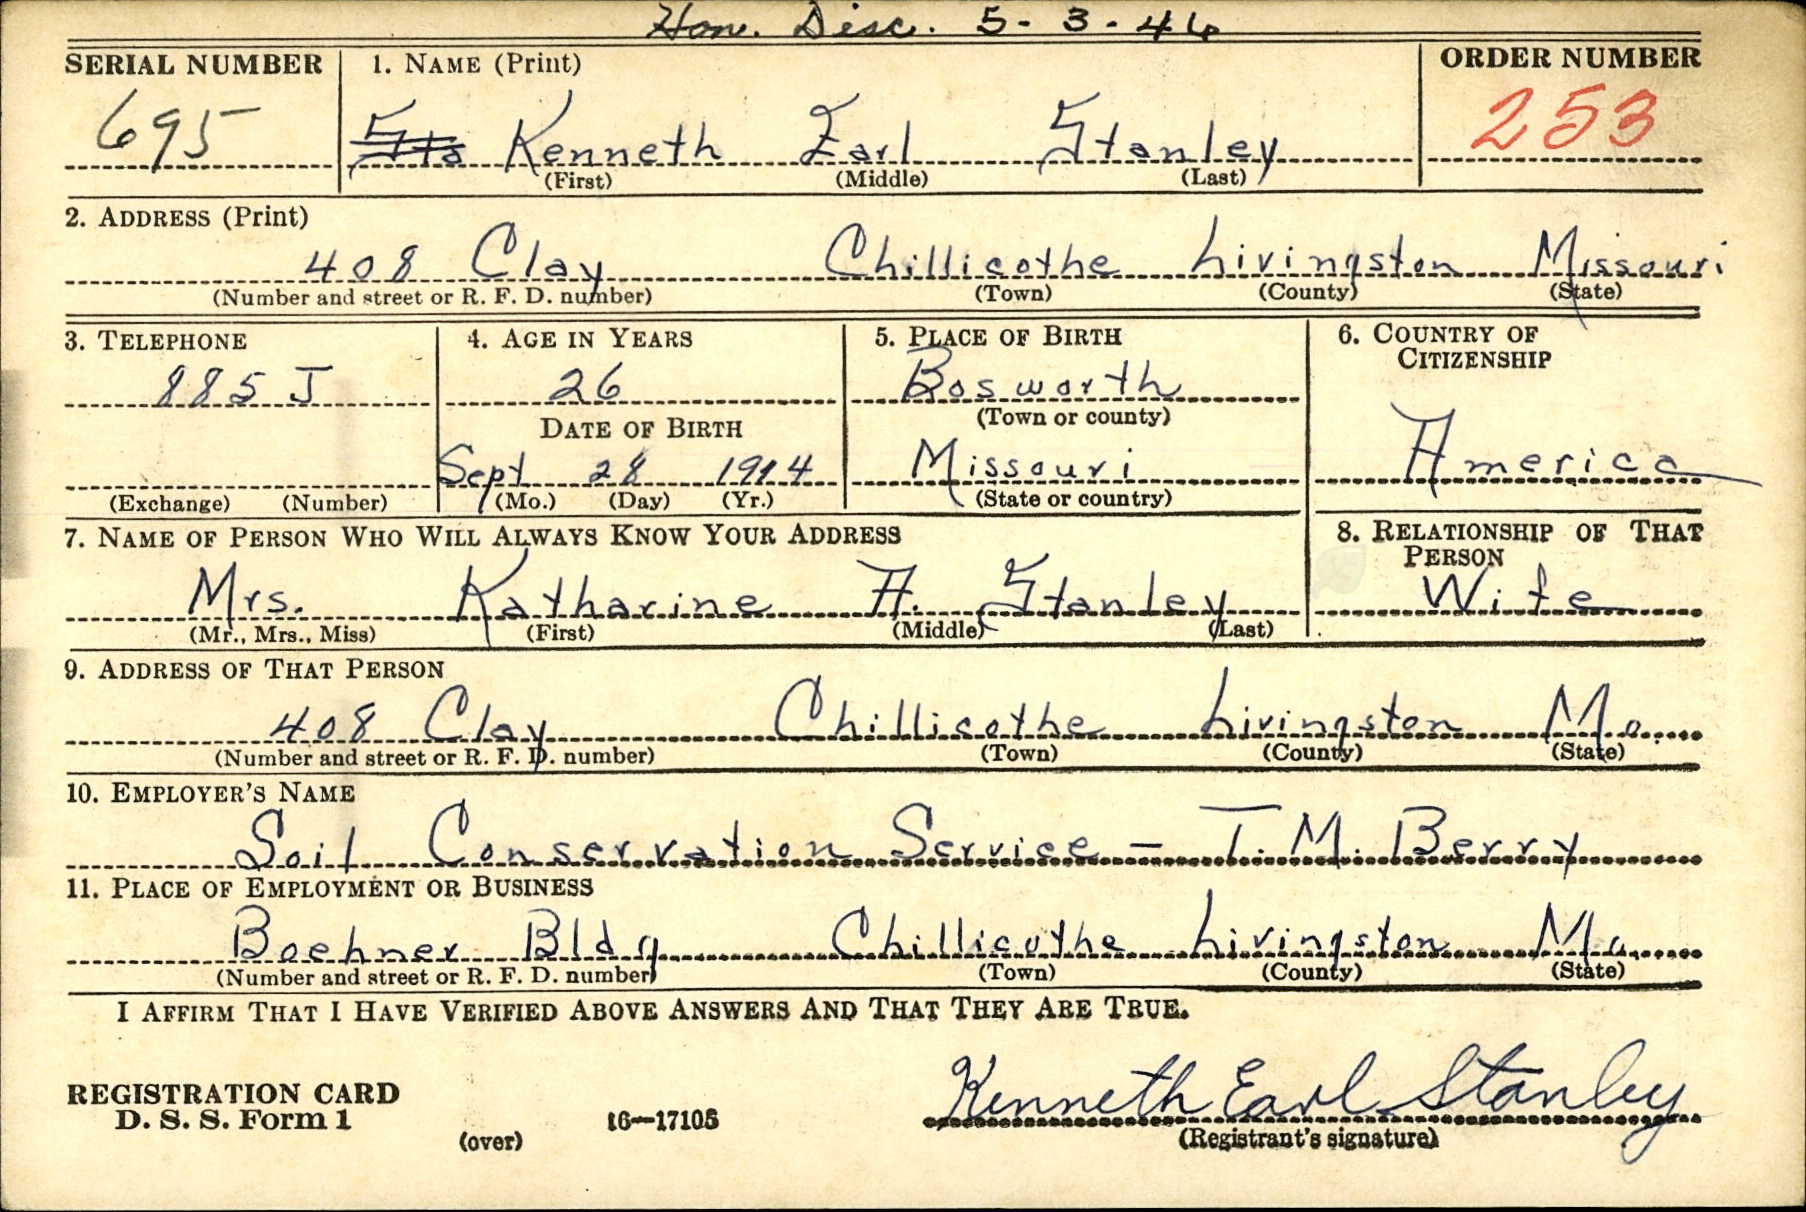 Hon. Disc. 5-3-46
SERIAL NUMBER 1. NAME (Print) ORDER NUMBER
695 Sta Kenneth Earl Stanley 253
(First) (Middle) (Last)
2. ADDRESS (Print)
408 Clay Chillicothe Livingston Missouri
(Number and street or R. F. D. number) (Town) (County) (State)
3. TELEPHONE 4. AGE IN YEARS 5. PLACE OF BIRTH 6. COUNTRY OF
CITIZENSHIP
885 J 26 Bosworth
DATE OF BIRTH (Town or county)
Sept 28 1914 Missouri America
(Exchange) (Number) (Mo.) (Day) (Yr.) (State or country)
7. NAME OF PERSON WHO WILL ALWAYS KNOW YOUR ADDRESS 8. RELATIONSHIP OF THAT
PERSON
Mrs. Katharine A. Stanley Wife
(Mr., Mrs., Miss) (First) (Middle) (Last)
9. ADDRESS OF THAT PERSON
408 Clay Chillicothe Livingston Mo.
(Number and street or R. F. D. number) (Town) (County) (State)
10. EMPLOYER'S NAME
Soil Conservation Service - T. M. Berry
11. PLACE OF EMPLOYMENT OR BUSINESS
Boehner Bldg Chillicothe Livingston Mo.
(Number and street or R. F. D. number) (Town) (County) (State)
I AFFIRM THAT I HAVE VERIFIED ABOVE ANSWERS AND THAT THEY ARE TRUE.
REGISTRATION CARD Kenneth Earl Stanley
D. S. S. Form 1 16—17105
(over) (Registrant's signature)